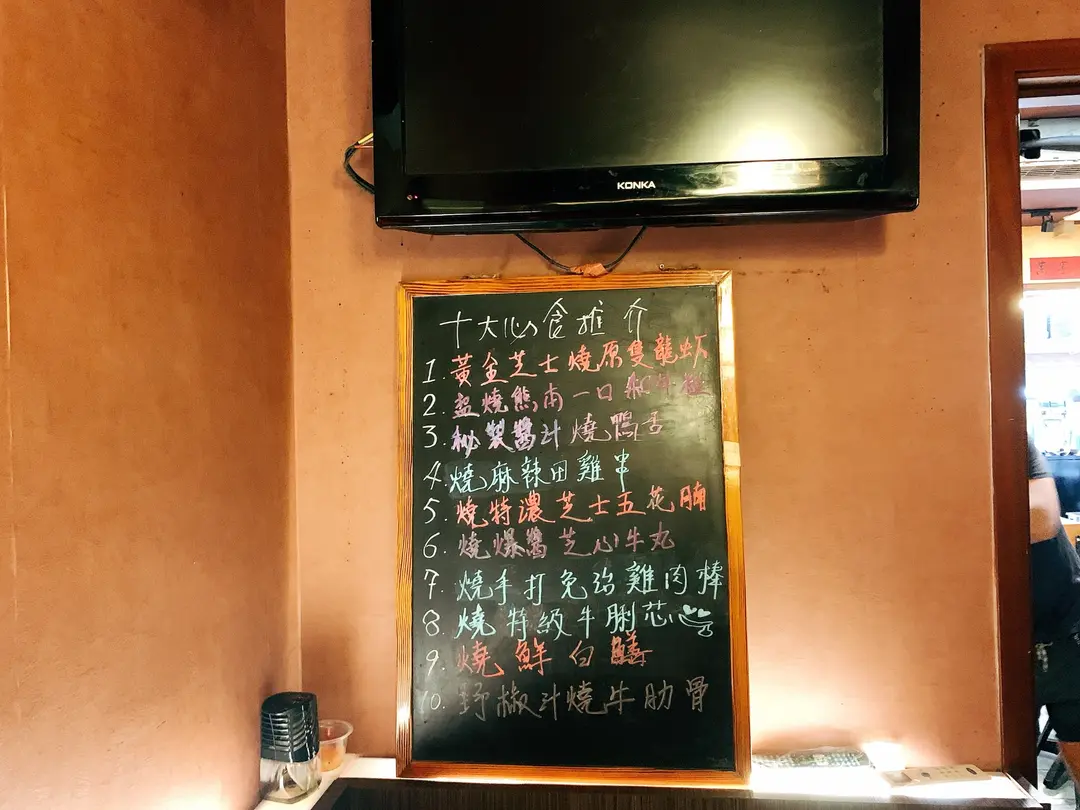 KONKA
十大心食推介
1. 黃金芝士燒原隻龍蚧
2. 燒熊 一口
3. 秘製醬汁燒鴨舌
4. 燒麻辣田雞串
5. 燒特濃芝士五花腩
6. 燒爆醬芝心牛丸
7. 燒手打免治雞肉棒
8. 燒特級牛脷芯
9. 燒鮮白鱔
10. 野椒汁燒牛肋骨